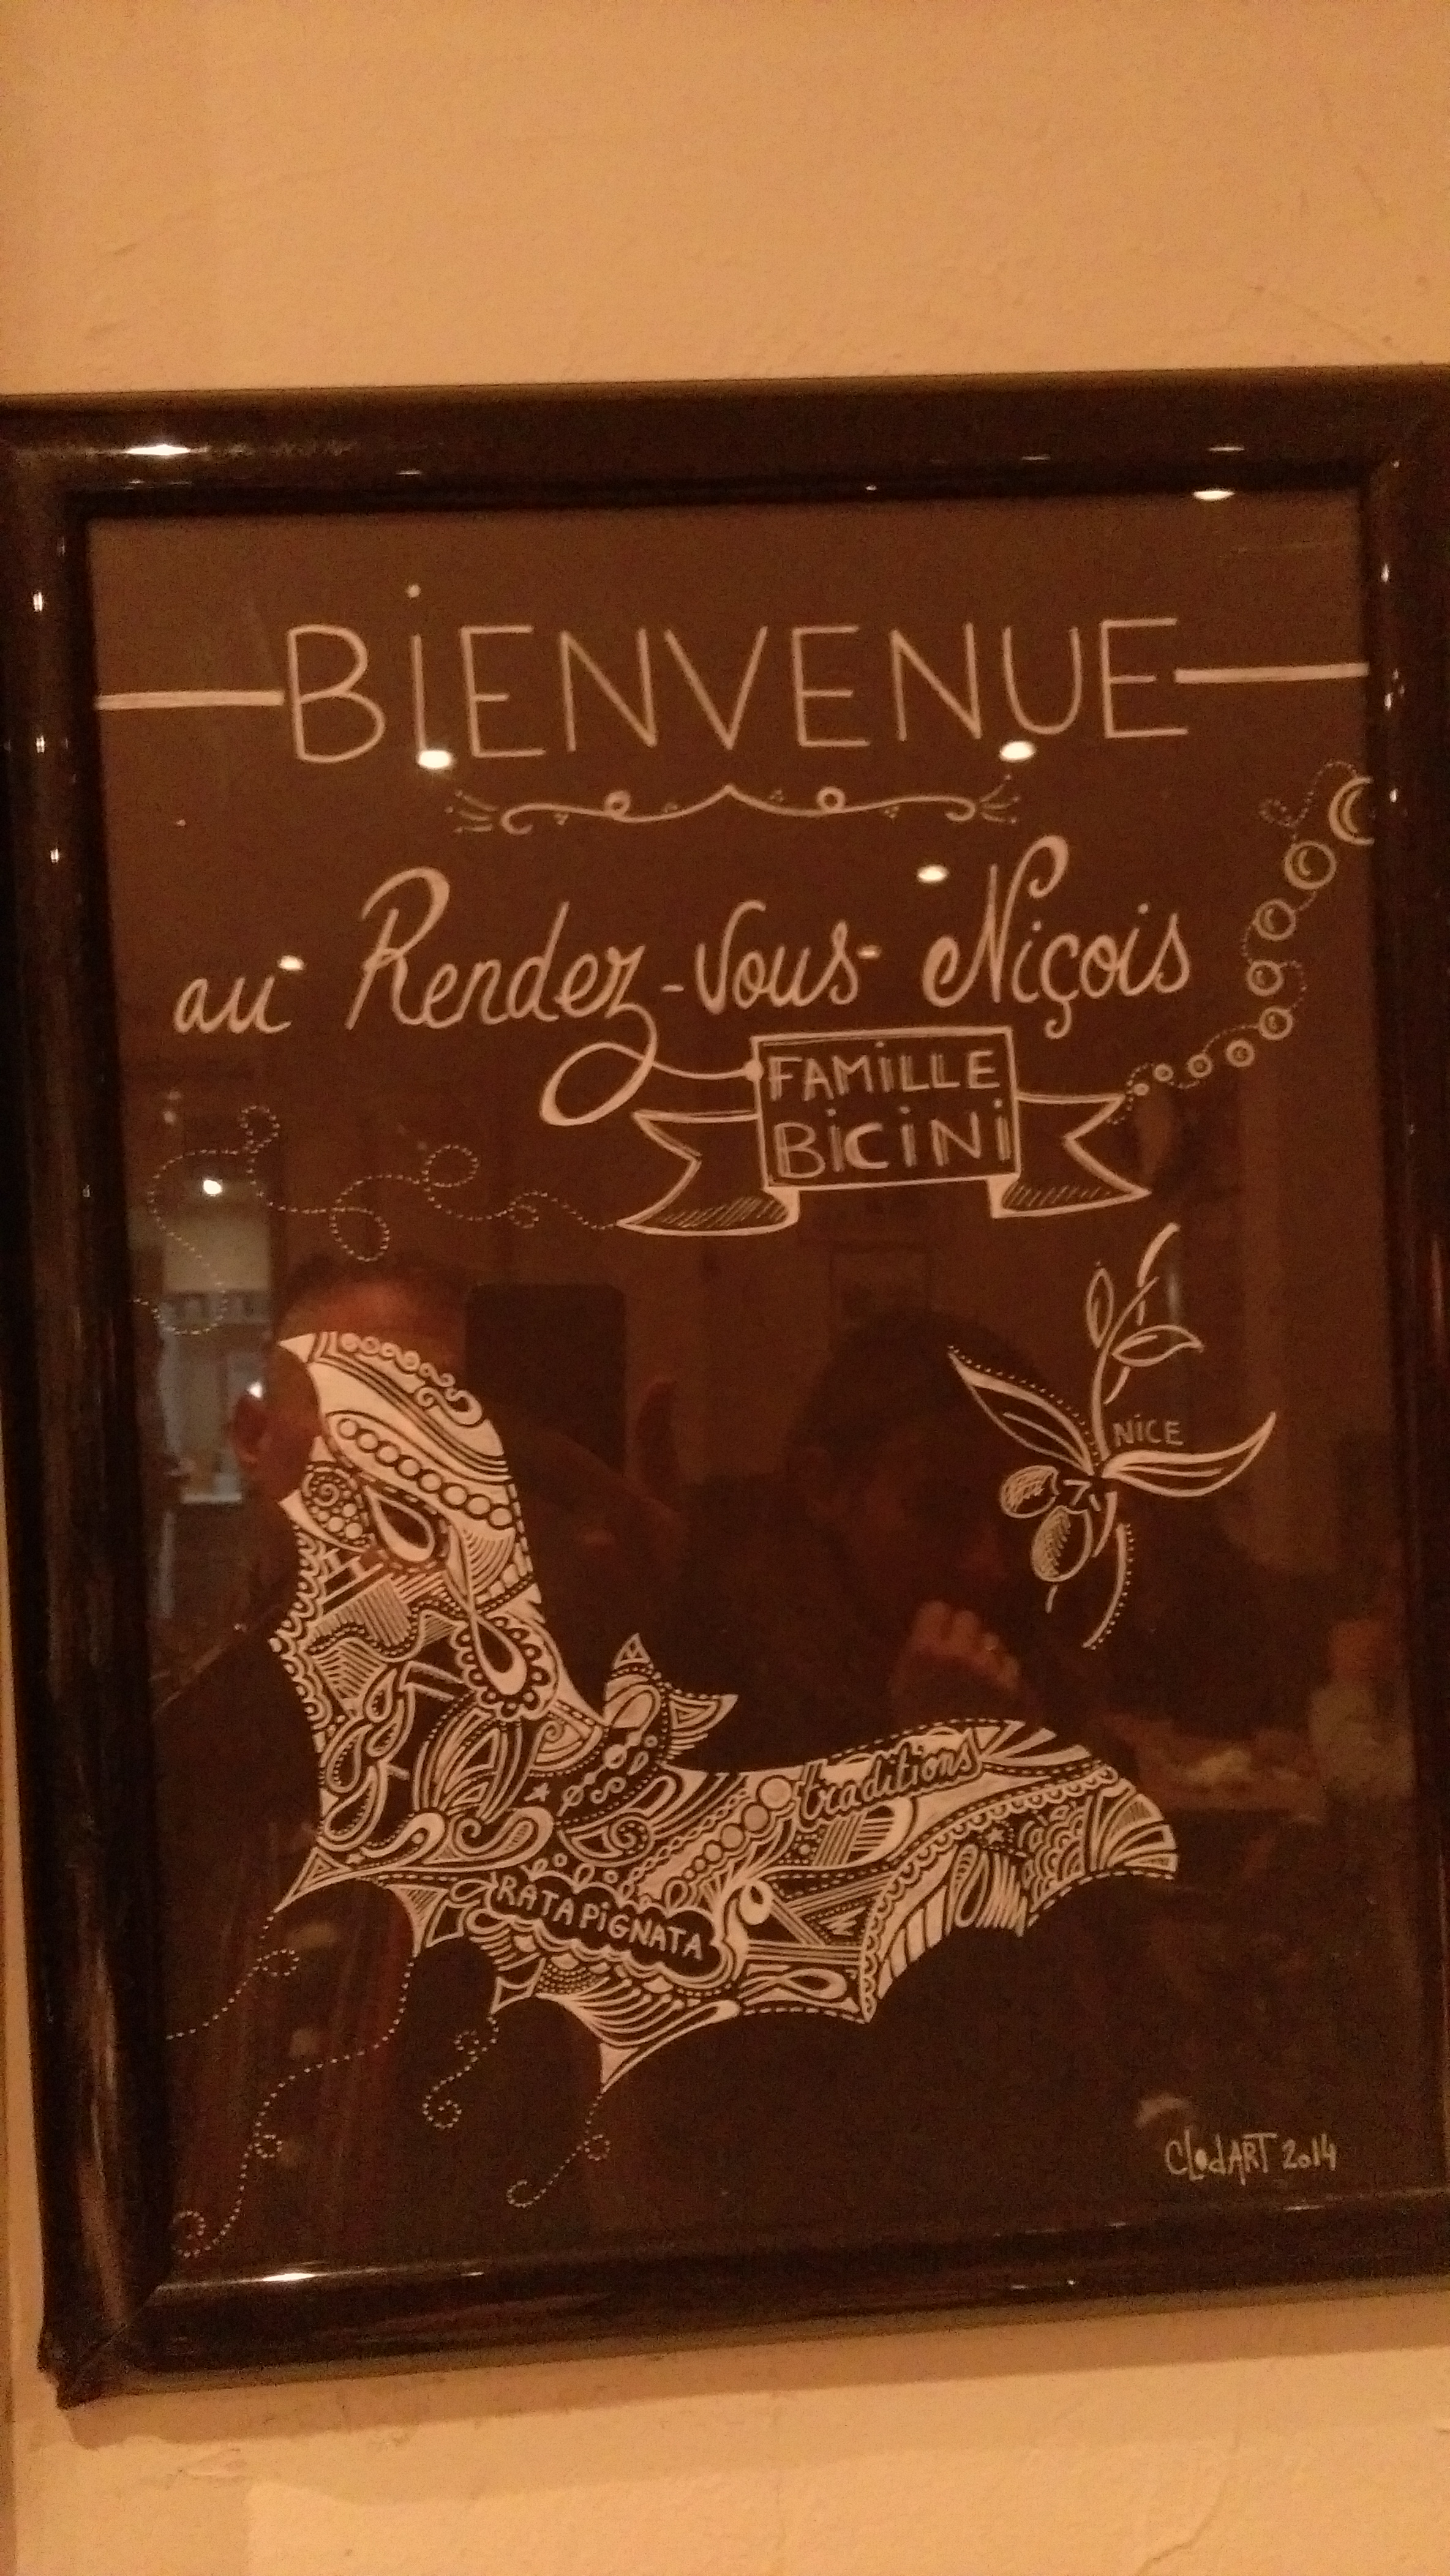 BiENVENUE
au Rendez-Vous Niçois
FAMiLLE
BiCiNi
NiCE
traditions
RATAPiGNATA
CLodART 2014